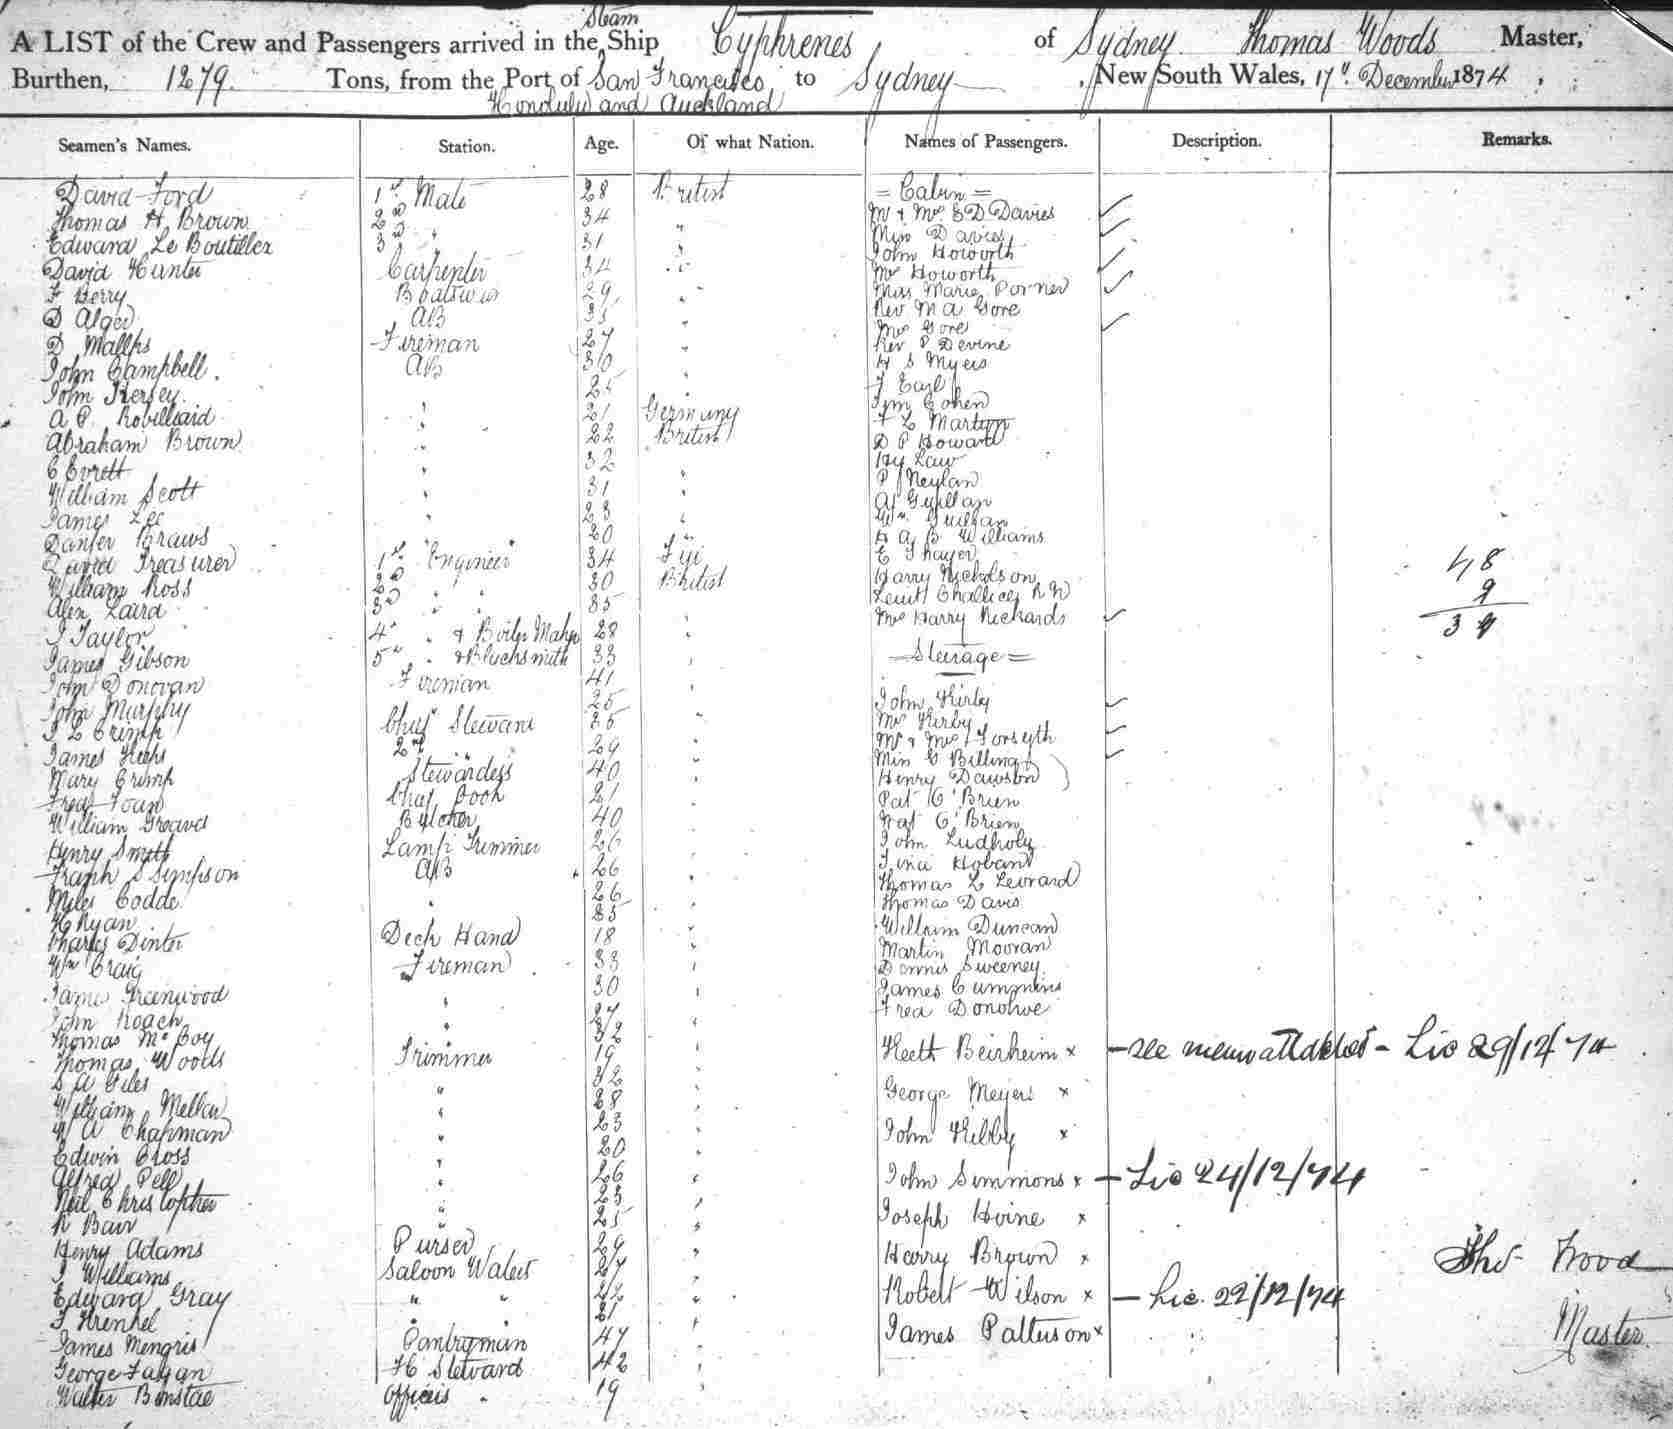 Steam
A LIST of the Crew and Passengers arrived in the Ship Cyphrenes of Sydney Thomas Woods Master,
Burthen, 1279. Tons, from the Port of San Francisco to Sydney , New South Wales, 17th December 1874
Honolulu and Auckland
Seamen's Names. Station. Age. Of what Nation. Names of Passengers. Description. Remarks.
David Ford 1st Mate 28 British
Thomas H Brown 2nd " 34 "
Edward Le Boutiller 3rd " 31 "
David Hunter Carpenter 34 "
F Berry 29 "
D Alger AB 35 "
D Fireman 27 "
John Campbell AB 30 "
John Kersey 25 "
A P Robilliard " 21 Germany
Abraham Brown " 22 British
C Evrett " 32 "
William Scott " 31 "
James Lee " 23 "
Daniel " 20 "
David Treasurer 1st Engineer 34 Fiji
William Ross 2nd " " 30 British
Alex Laird 3rd " " 35 "
J Taylor 4th " & Boiler 28 "
James Gibson 5th " & Blacksmith 33 "
John Donovan Fireman 41 "
John Murphy 25 "
J L Crimp Chief Steward 35 "
James 2nd " 29 "
Mary Crimp Stewardess 40 "
Fred Chief Cook 21 "
William Butcher 40 "
Henry Smith Lamp Trimmer 26 "
Frank S Simpson AB 26 "
Myles Codde " 26 "
H Ryan 35 "
Charles Dinter Deck Hand 18 "
Wm Craig Fireman 33 "
James Greenwood 30 "
John Roach " 27 "
Thomas McCoy " 32 "
Thomas Woods Trimmer 19 "
S A Giles 32 "
William " 28 "
W A Chapman " 23 "
Edwin Cross " 20 "
Alfred Pell " 26 "
Neil Christopher " 23 "
R Barr " 25 "
Henry Adams Purser 29 "
J Williams Saloon Waiter 27 "
Edward Gray " " 22 "
F Frenkel 21 "
James Pantryman 47 "
George Fagan FC Steward 42 "
Walter Officers " 19 "
= Cabin =
Mr & Mrs E D Davies
Miss Davies
John Howorth
Mrs Howorth
Miss Marie
Rev M A Gore
Mrs Gore
Rev P Devine
H S Myers
F Earl
Jim Cohen
F L
D P Howard
Hy Law
P Neylan
A Guillan
Wm Guillan
H A B Williams
E Thayer
Harry Nicholson
Lieut Challice R N
Mrs Harry Rickards
= Steerage =
John Kirby
Mrs Kirby
Mr & Mrs Forsyth
Miss G Billing
Henry Dawson
Pat O'Brien
Wat O'Brien
John
Hoban
Thomas L Leonard
Thomas Davis
William Duncan
Martin Mooran
Dennis Sweeney
James Cummins
Fred
Keeth Beirheim x — see memo attached — Lic 29/12/74
George Meyers x
John Kilby x
John Simmons x — Lic 24/12/74
Joseph x
Harry Brown x
Robert Wilson x — Lic. 22/12/74
James Patterson x
48
9
39
Thos Wood
Master